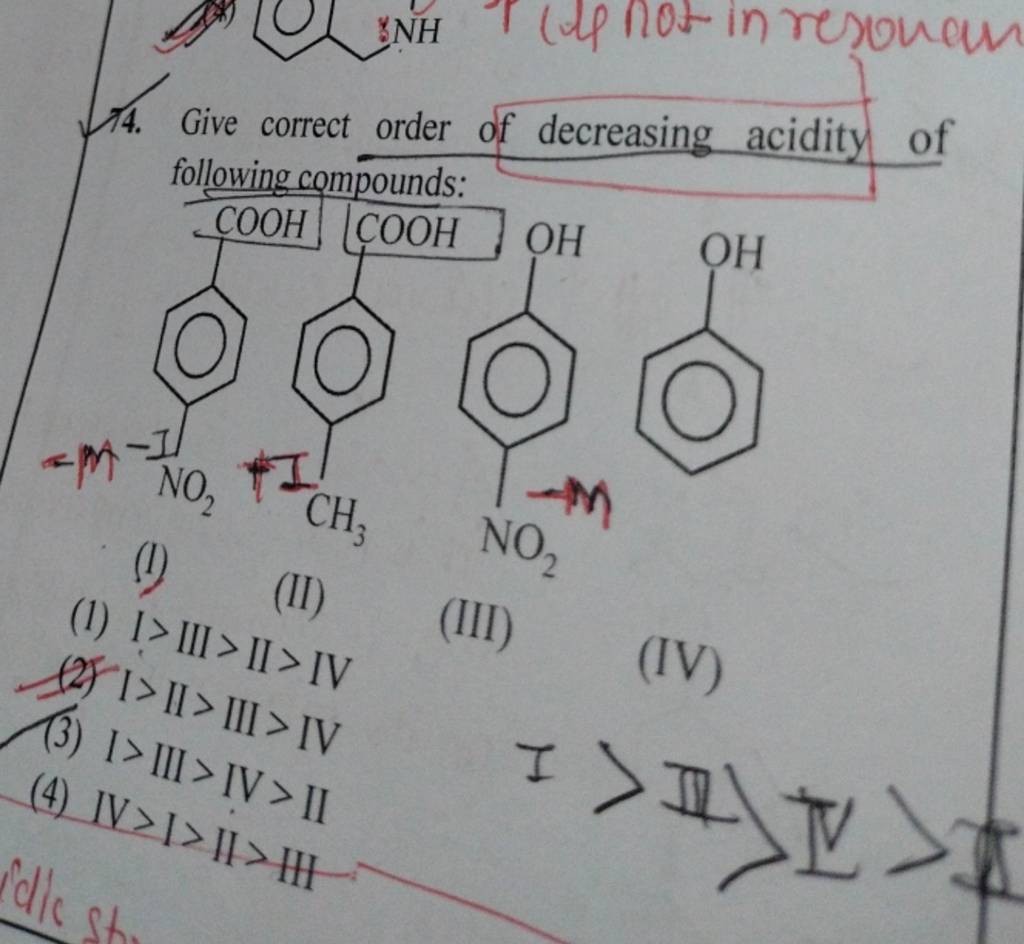 NH ↑ (lp not in resonan
74. Give correct order of decreasing acidity of
following compounds:
COOH COOH OH OH
-M -I NO₂ +I CH₃ NO₂ -M
(I) (II) (III) (IV)
(1) I > III > II > IV
(2) I > II > III > IV
(3) I > III > IV > II
(4) IV > I > II > III
I > III > IV > II